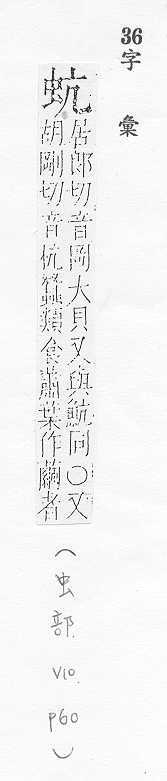 36字彙
蚢居郎切音岡大貝又與魧同○又
胡剛切音杭蠶類食蕭葉作繭者
(虫部 V10 P60)